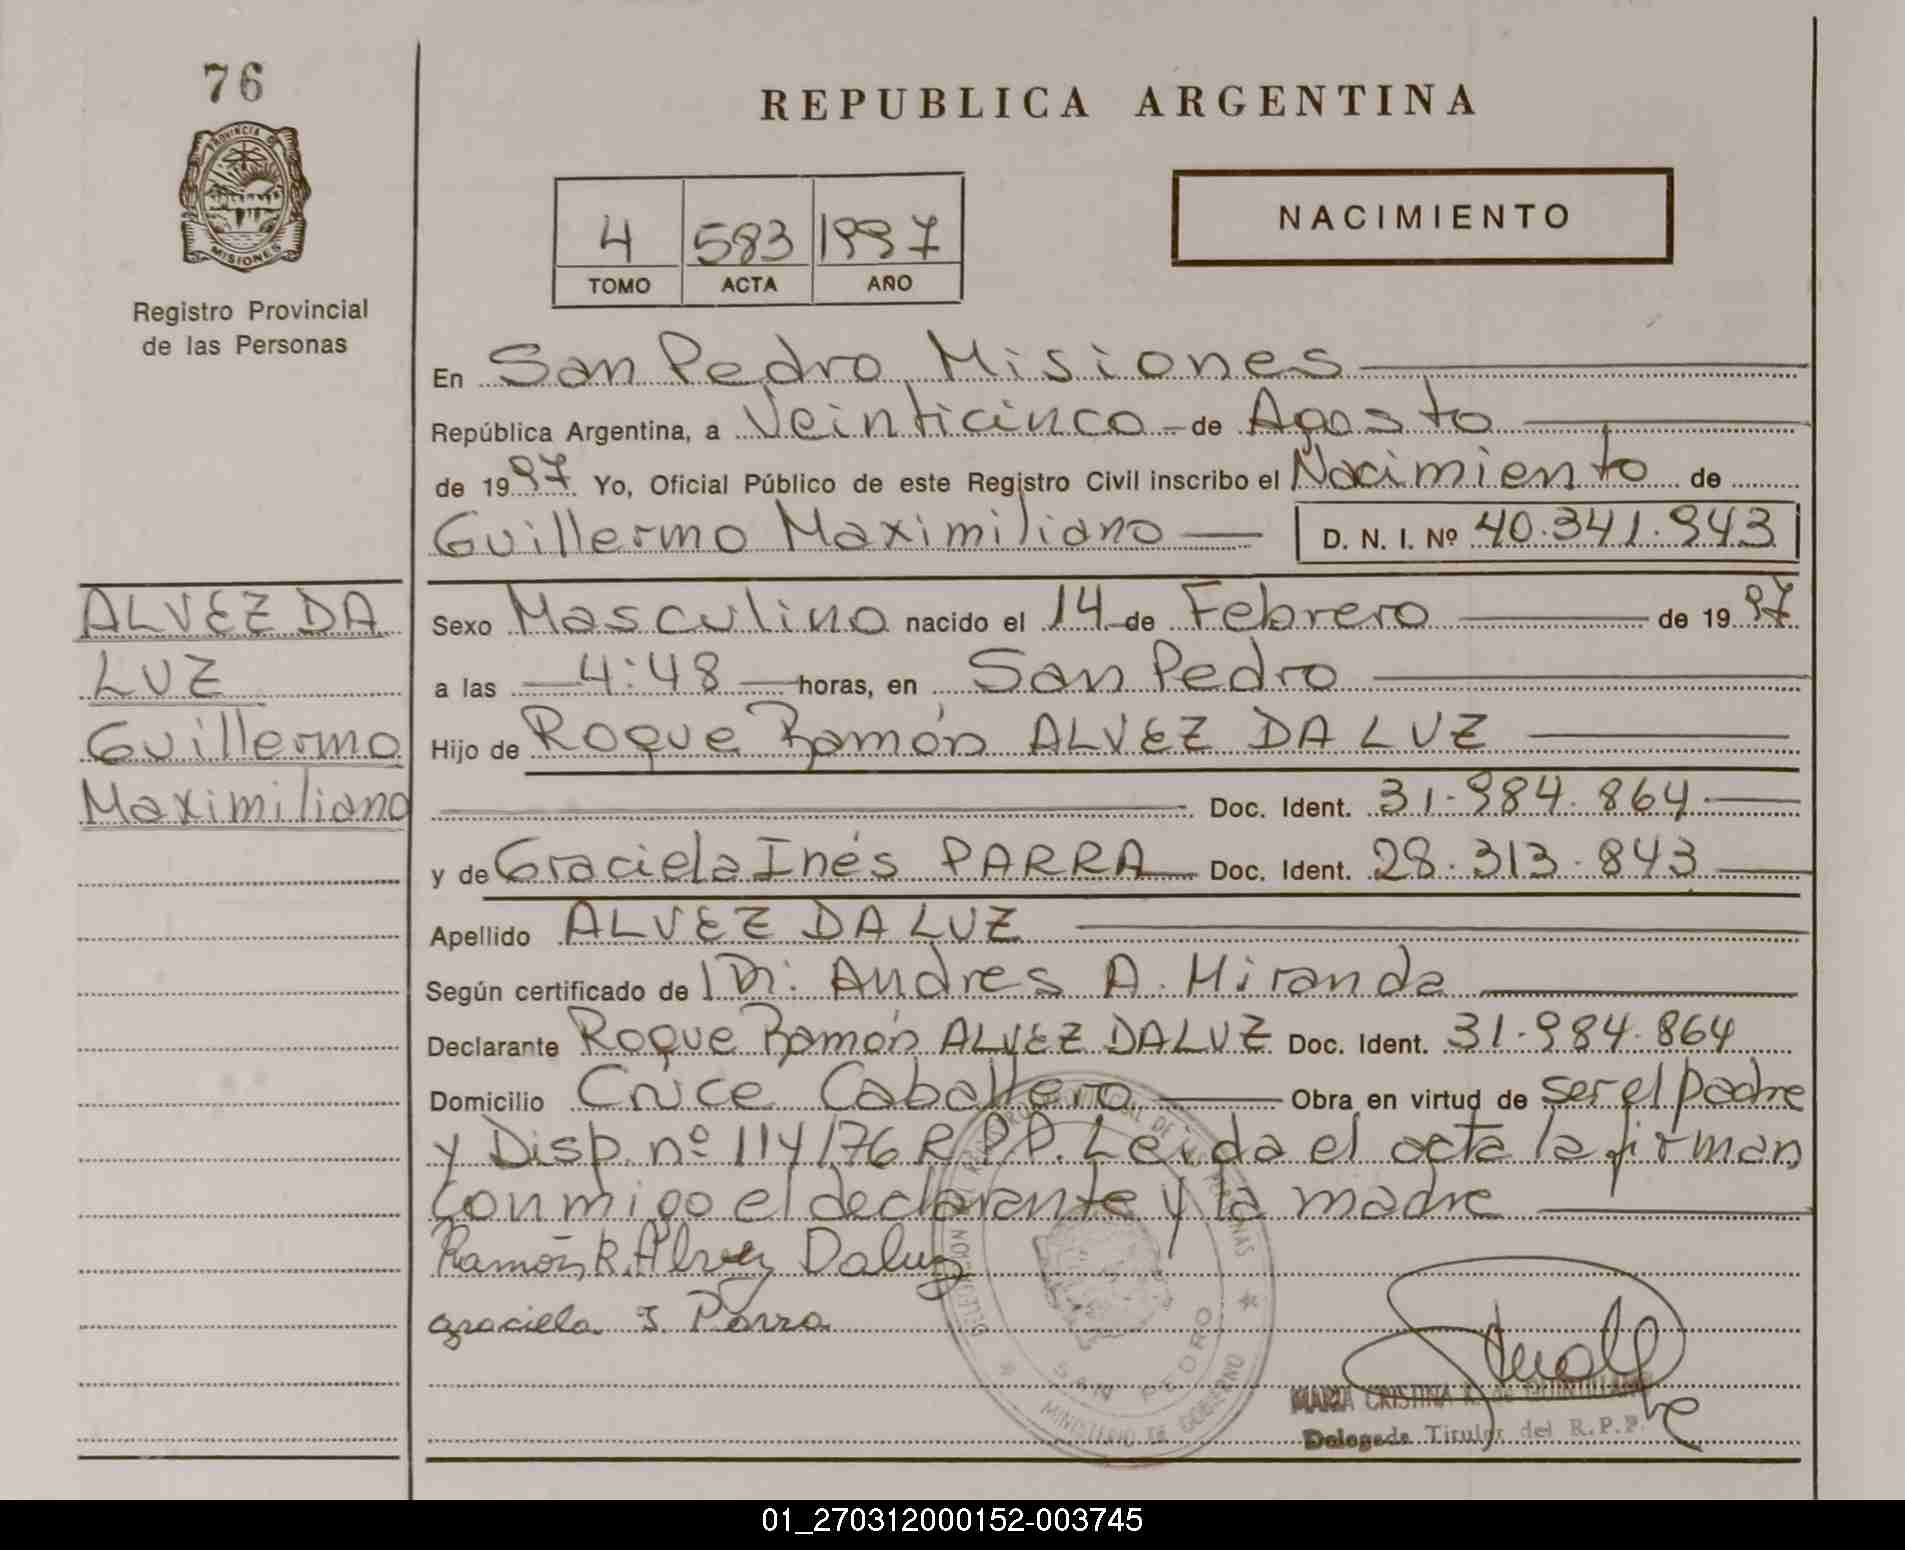 76
PROVINCIA DE
MISIONES
Registro Provincial
de las Personas
REPUBLICA ARGENTINA
4 583 1997
TOMO ACTA AÑO
NACIMIENTO
En San Pedro Misiones
República Argentina, a Veinticinco de Agosto
de 1997 Yo, Oficial Público de este Registro Civil inscribo el Nacimiento de
Guillermo Maximiliano D. N. I. Nº 40.341.943
ALVEZ DA
LUZ
Guillermo
Maximiliano
Sexo Masculino nacido el 14 de Febrero de 1997
a las 4:48 horas, en San Pedro
Hijo de Roque Ramón ALVEZ DA LUZ
Doc. Ident. 31.984.864
y de Graciela Inés PARRA Doc. Ident. 28.313.843
Apellido ALVEZ DA LUZ
Según certificado de Dr. Andres A. Miranda
Declarante Roque Ramón ALVEZ DA LUZ Doc. Ident. 31.984.864
Domicilio Cruce Caballero Obra en virtud de ser el padre
y Disp. nº 114/76 R.P.P. Leida el acta la firman
conmigo el declarante y la madre
Ramón R. Alvez Daluz
graciela I. Parra
SAN PEDRO
MINISTERIO DE GOBIERNO
MARIA CRISTINA de
Delegada Titular del R.P.P.
01_270312000152-003745